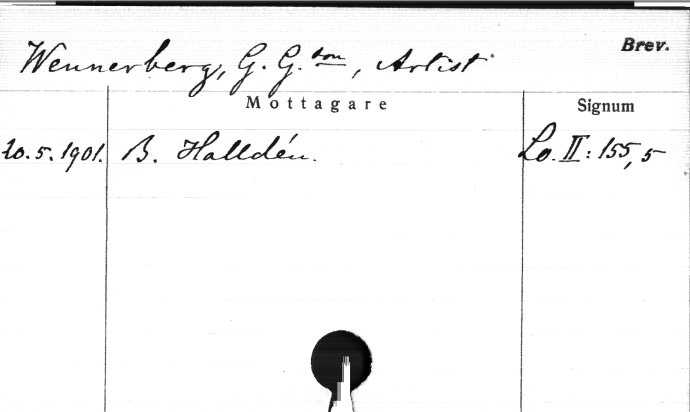 Brev.
Wennerberg, G. G:son, Artist
Mottagare Signum
20.5.1901. B. Halldén. Lo. II: 155,5